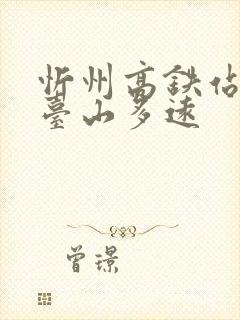 忻州高铁佔
臺山多远
曾璟